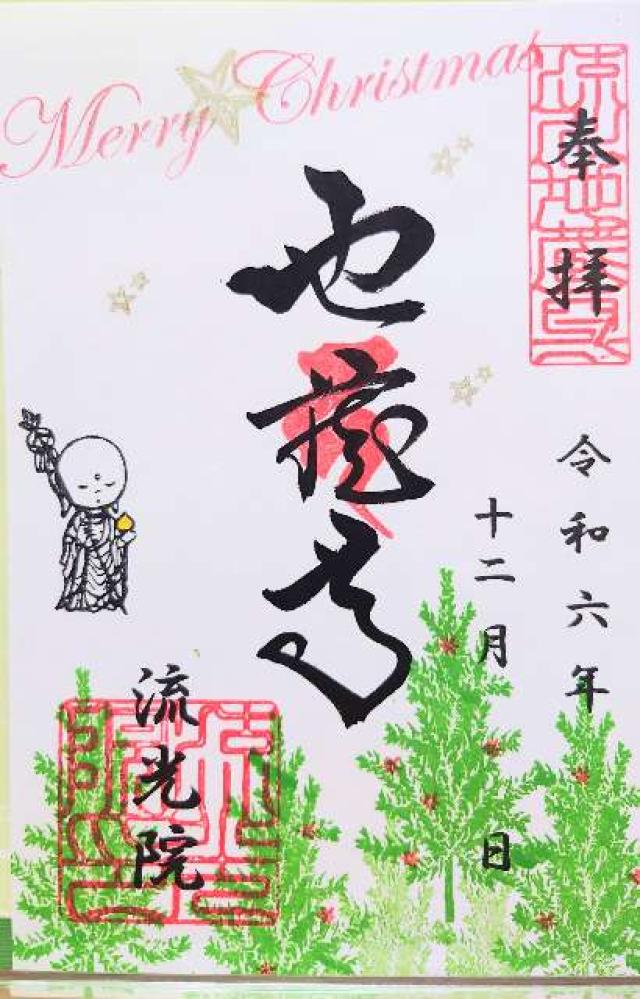 Merry Christmas
奉拝
令和六年
十二月 日
地蔵尊
流光院